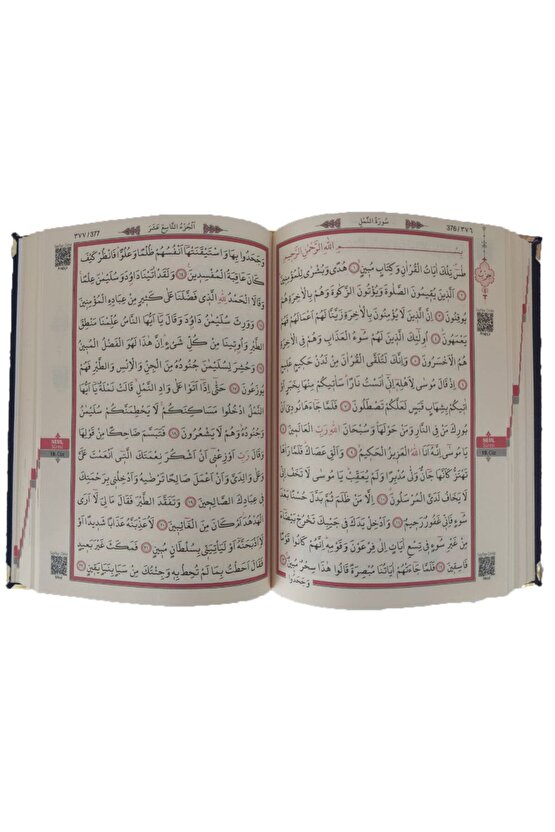 سُورَةُ النَّمْلِ 376/٣٧٦
بِسْمِ اللهِ الرَّحْمٰنِ الرَّحِيمِ
طٰسٓ تِلْكَ اٰيَاتُ الْقُرْاٰنِ وَكِتَابٍ مُبِينٍ ١ هُدًى وَبُشْرٰى لِلْمُؤْمِنِينَ
٢ اَلَّذِينَ يُقِيمُونَ الصَّلٰوةَ وَيُؤْتُونَ الزَّكٰوةَ وَهُمْ بِالْاٰخِرَةِ هُمْ
يُوقِنُونَ ٣ اِنَّ الَّذِينَ لَا يُؤْمِنُونَ بِالْاٰخِرَةِ زَيَّنَّا لَهُمْ اَعْمَالَهُمْ فَهُمْ
يَعْمَهُونَ ٤ اُو۬لٰٓئِكَ الَّذِينَ لَهُمْ سُٓوءُ الْعَذَابِ وَهُمْ فِي الْاٰخِرَةِ
هُمُ الْاَخْسَرُونَ ٥ وَاِنَّكَ لَتُلَقَّى الْقُرْاٰنَ مِنْ لَدُنْ حَكِيمٍ عَلِيمٍ
٦ اِذْ قَالَ مُوسٰى لِاَهْلِهٓ اِنِّٓي اٰنَسْتُ نَارًا سَاٰتِيكُمْ مِنْهَا بِخَبَرٍ اَوْ
اٰتِيكُمْ بِشِهَابٍ قَبَسٍ لَعَلَّكُمْ تَصْطَلُونَ ٧ فَلَمَّا جَٓاءَهَا نُودِيَ اَنْ
بُورِكَ مَنْ فِي النَّارِ وَمَنْ حَوْلَهَا وَسُبْحَانَ اللهِ رَبِّ الْعَالَمِينَ ٨
يَا مُوسٰٓى اِنَّهُٓ اَنَا اللهُ الْعَزِيزُ الْحَكِيمُ ٩ وَاَلْقِ عَصَاكَ فَلَمَّا رَاٰهَا
تَهْتَزُّ كَاَنَّهَا جَٓانٌّ وَلّٰى مُدْبِرًا وَلَمْ يُعَقِّبْ يَا مُوسٰى لَا تَخَفْ اِنِّي
لَا يَخَافُ لَدَيَّ الْمُرْسَلُونَ ١٠ اِلَّا مَنْ ظَلَمَ ثُمَّ بَدَّلَ حُسْنًا بَعْدَ
سُٓوءٍ فَاِنِّي غَفُورٌ رَحِيمٌ ١١ وَاَدْخِلْ يَدَكَ فِي جَيْبِكَ تَخْرُجْ بَيْضَٓاءَ
مِنْ غَيْرِ سُٓوءٍ فِي تِسْعِ اٰيَاتٍ اِلٰى فِرْعَوْنَ وَقَوْمِهٖ اِنَّهُمْ كَانُوا قَوْمًا
فَاسِقِينَ ١٢ فَلَمَّا جَٓاءَتْهُمْ اٰيَاتُنَا مُبْصِرَةً قَالُوا هٰذَا سِحْرٌ مُبِينٌ ١٣
وَجَحَدُوا
NEML
Suresi
19. Cüz
٣٧٧/377 اَلْجُزْءُ التَّاسِعَ عَشَرَ
وَجَحَدُوا بِهَا وَاسْتَيْقَنَتْهَٓا اَنْفُسُهُمْ ظُلْمًا وَعُلُوًّا فَانْظُرْ كَيْفَ
كَانَ عَاقِبَةُ الْمُفْسِدِينَ ١٤ وَلَقَدْ اٰتَيْنَا دَاوُدَ وَسُلَيْمٰنَ عِلْمًا
وَقَالَا الْحَمْدُ لِلّٰهِ الَّذِي فَضَّلَنَا عَلٰى كَثِيرٍ مِنْ عِبَادِهِ الْمُؤْمِنِينَ
١٥ وَوَرِثَ سُلَيْمٰنُ دَاوُدَ وَقَالَ يَٓا اَيُّهَا النَّاسُ عُلِّمْنَا مَنْطِقَ
الطَّيْرِ وَاُو۫تِينَا مِنْ كُلِّ شَيْءٍ اِنَّ هٰذَا لَهُوَ الْفَضْلُ الْمُبِينُ
١٦ وَحُشِرَ لِسُلَيْمٰنَ جُنُودُهُ مِنَ الْجِنِّ وَالْاِنْسِ وَالطَّيْرِ فَهُمْ
يُوزَعُونَ ١٧ حَتّٰٓى اِذَٓا اَتَوْا عَلٰى وَادِ النَّمْلِ قَالَتْ نَمْلَةٌ يَٓا اَيُّهَا
النَّمْلُ ادْخُلُوا مَسَاكِنَكُمْ لَا يَحْطِمَنَّكُمْ سُلَيْمٰنُ
وَجُنُودُهُ وَهُمْ لَا يَشْعُرُونَ ١٨ فَتَبَسَّمَ ضَاحِكًا مِنْ قَوْلِهَا
وَقَالَ رَبِّ اَوْزِعْنِٓي اَنْ اَشْكُرَ نِعْمَتَكَ الَّتِٓي اَنْعَمْتَ عَلَيَّ
وَعَلٰى وَالِدَيَّ وَاَنْ اَعْمَلَ صَالِحًا تَرْضٰيهُ وَاَدْخِلْنِي بِرَحْمَتِكَ
فِي عِبَادِكَ الصَّالِحِينَ ١٩ وَتَفَقَّدَ الطَّيْرَ فَقَالَ مَا لِيَ لَٓا اَرَى
الْهُدْهُدَ اَمْ كَانَ مِنَ الْغَٓائِبِينَ ٢٠ لَاُعَذِّبَنَّهُ عَذَابًا شَدِيدًا اَوْ
لَاَا۬ذْبَحَنَّهُٓ اَوْ لَيَاْتِيَنِّي بِسُلْطَانٍ مُبِينٍ ٢١ فَمَكَثَ غَيْرَ بَعِيدٍ
فَقَالَ اَحَطْتُ بِمَا لَمْ تُحِطْ بِهٖ وَجِئْتُكَ مِنْ سَبَاٍ بِنَبَاٍ يَقِينٍ ٢٢
NEML
Suresi
19. Cüz